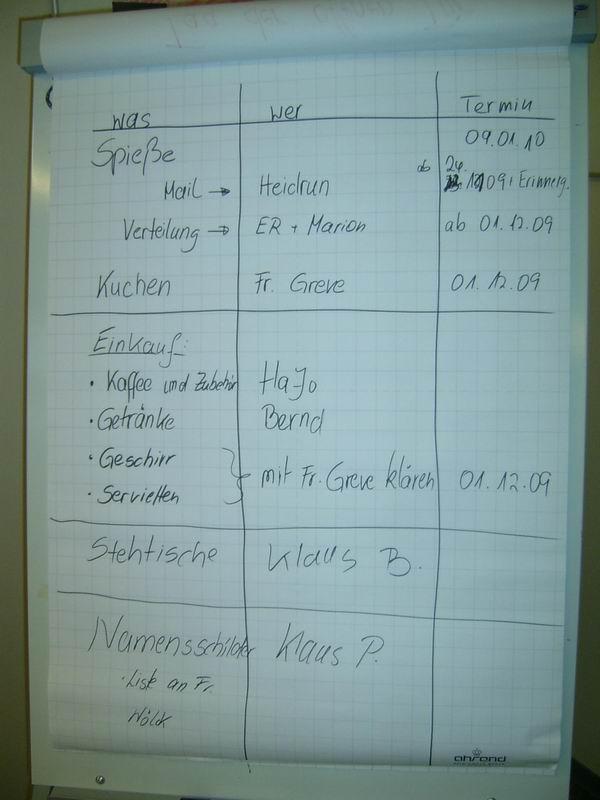 was wer Termin
Spieße 09.01.10
Mail → Heidrun ab 24. 09 Erinnerg.
Verteilung → ER + Marion ab 01.12.09
Kuchen Fr. Greve 01.12.09
Einkauf:
• Kaffee und Zubehör HaJo
• Getränke Bernd
• Geschirr
mit Fr. Greve klären 01.12.09
• Servietten
Stehtische Klaus B.
Namensschilder Klaus P.
• Liste an Fr.
Wölck
ahrend